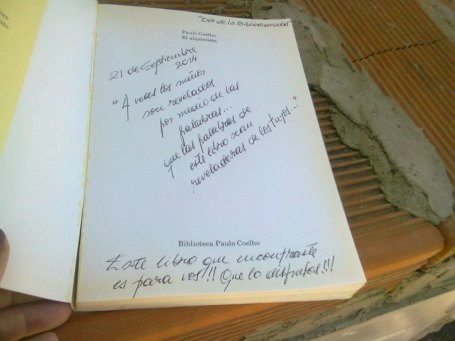 "Día de la Bibliodiversidad"
Paulo Coelho
El alquimista
21 de Septiembre
2014
"A veces los sueños
son revelados
por medio de las
palabras...
que las palabras de
este libro sean
reveladoras de los tuyos..."
Biblioteca Paulo Coelho
Este libro que encontraste
es para vos!!! Que lo disfrutes!!!